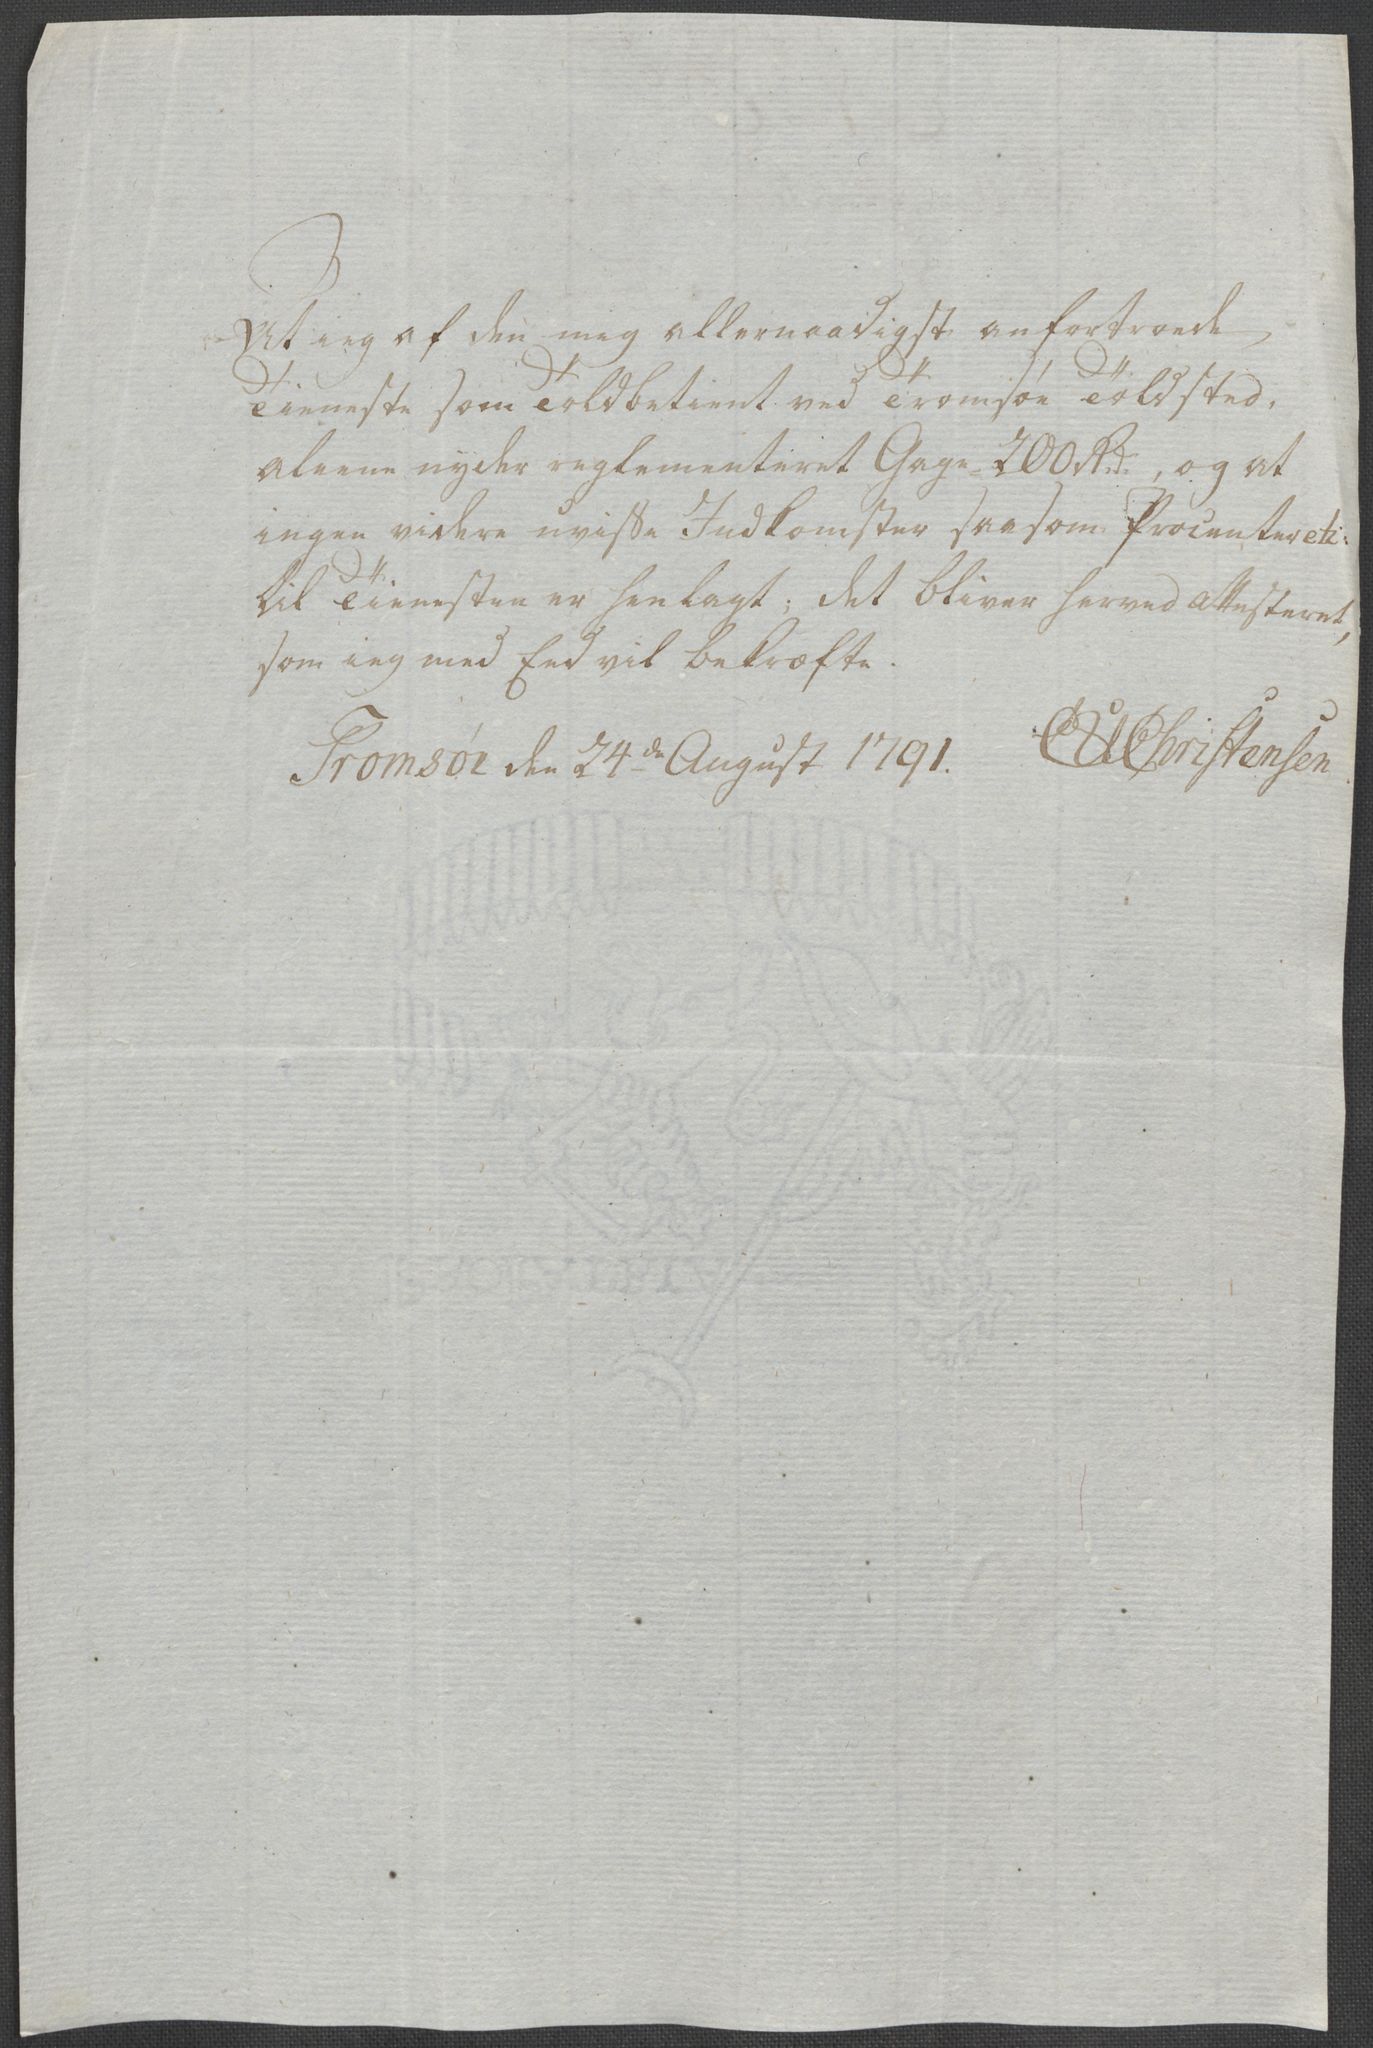 At ieg af den mig allernaadigst anfortroede
Tieneste som Toldbetient ved Tromsøe Toldsted,
aleene nyder reglementeret Gage 200 Rd:, og at
ingen videre uvisse Indkomster saasom Procenter etc:
til Tienesten er henlagt; det bliver herved attesteret,
som ieg med Eed vil bekræfte.
Tromsøe den 24de August 1791. Christensen